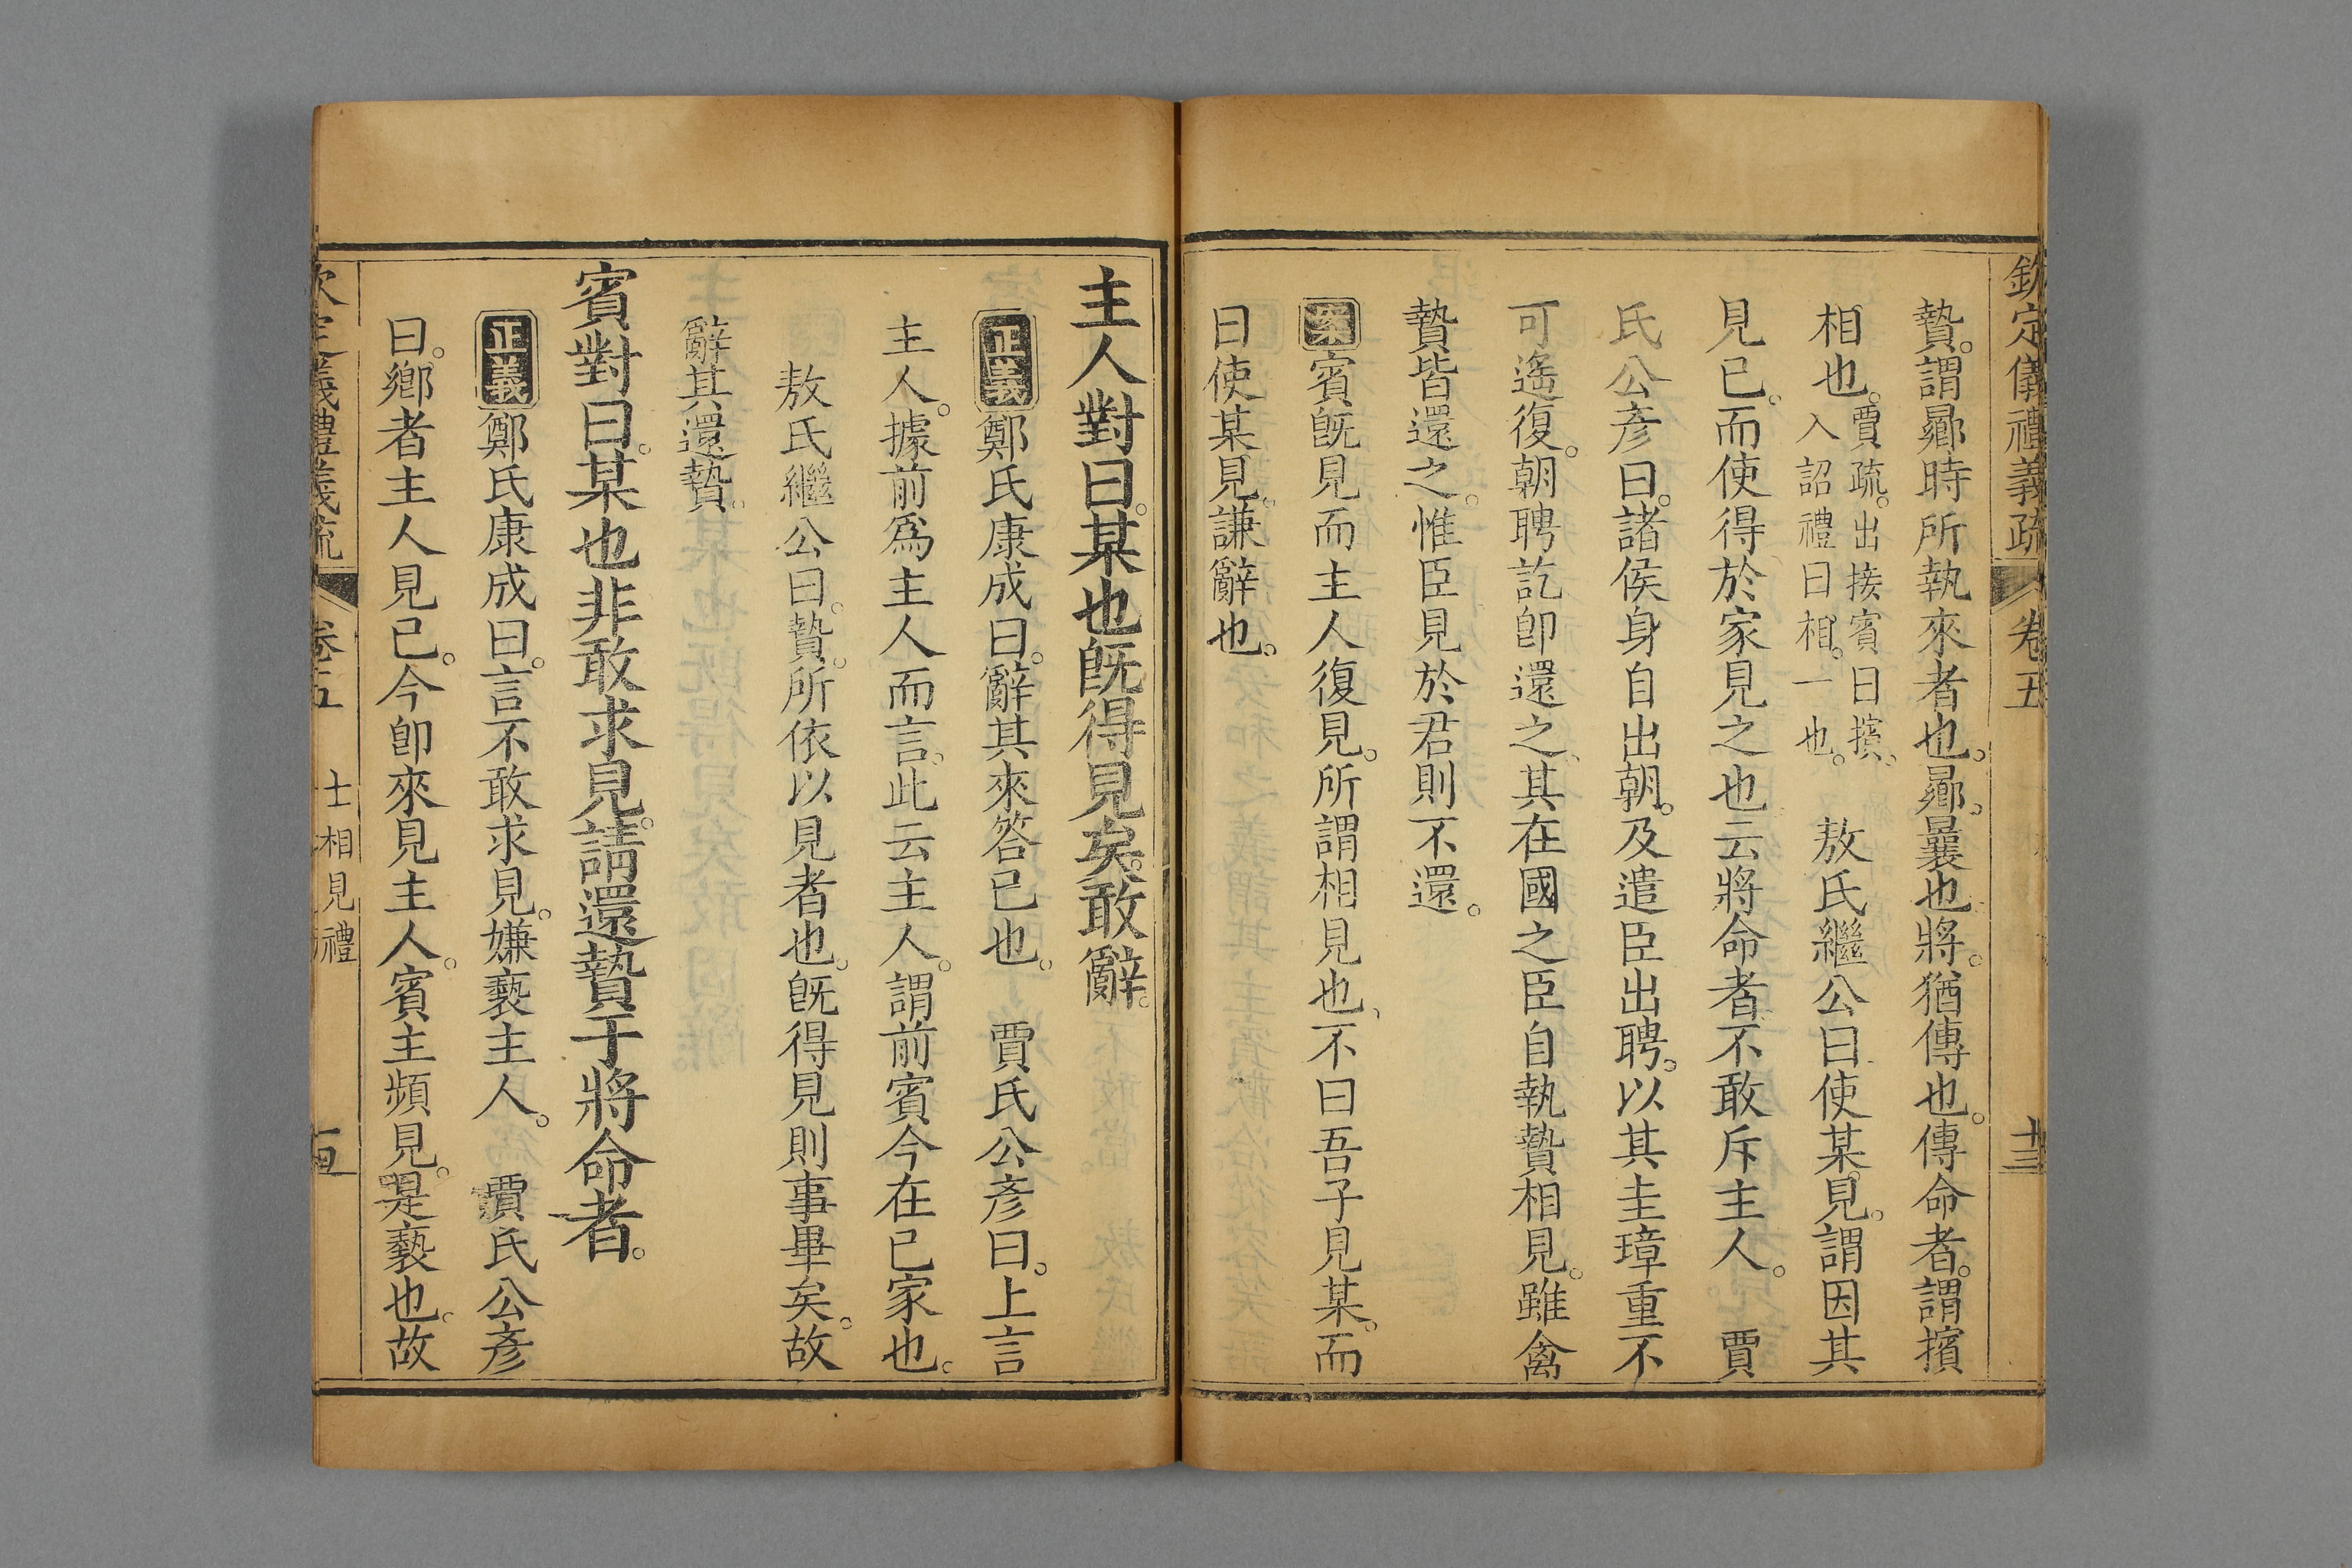 欽定儀禮義疏 卷五 十三
贄。謂曏時所執來者也。曏。曩也。將。猶傳也。傳命者。謂擯
相也。賈疏。出接賓曰擯、入詔禮曰相。一也。 敖氏繼公曰使某見。謂因其
見已。而使得於家見之也云將命者。不敢斥主人。 賈
氏公彥曰。諸侯身自出朝。及遣臣出聘。以其圭璋重不
可遙復。朝聘訖卽還之、其在國之臣自執贄相見。雖禽
贄皆還之。惟臣見於君則不還。
案賓旣見而主人復見。所謂相見也、不曰吾子見某。而
曰使某見。謙辭也。
主人對曰。某也旣得見矣。敢辭。
正義鄭氏康成曰。辭其來答已也。 賈氏公彥曰。上言
主人。據前爲主人而言。此云主人。謂前賓今在已家也。
敖氏繼公曰。贄。所依以見者也。旣得見則事畢矣。故
辭其還贄。
賓對曰。某也非敢求見。請還贄于將命者。
正義鄭氏康成曰。言不敢求見。嫌褻主人。 賈氏公彥
曰。鄉者主人見已。今卽來見主人。賓主頻見。是褻也。故
欽定儀禮義疏 卷五 士相見禮